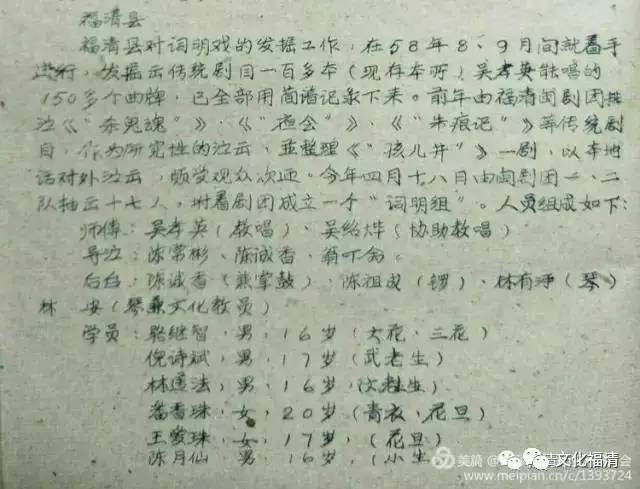 福清县
福清县对词明戏的发掘工作，在58年8、9月间就着手
进行，发掘云传统剧目一百多本（现存本所）吴孝英能唱的
150多个曲牌，已全部用简谱记录下来。前年由福清闽剧团排
演《“赤鬼魂”》·《“夜会”》、《“朱痕记”》等传统剧
目，作为研究性的演云，並整理《“孩儿井”》一剧，以本地
话对外演云，颇受观众欢迎。今年四月十八日由闽剧团一、二
队抽云十七人，附着剧团成立一个“词明组”。人员组成如下：
师傅：吴孝英（教唱）、吴绍烨（协助教唱）
导演：陈常彬、陈诚香、翁
后台：陈诚香（兼掌鼓）、陈祖成（锣）、林有（琴）
林 安（琴兼文化教员）
学员：骆继智，男，16岁（大花，三花）
倪诗斌，男，17岁（武老生）
林莲法，男，16岁，（文老生）
潘香珠，女，20岁（青衣，花旦）
王爱珠，女，17岁，（花旦）
陈月仙，男，16岁，（小生
美篇
文化福清
会
www.meipian.cn/c/1393724